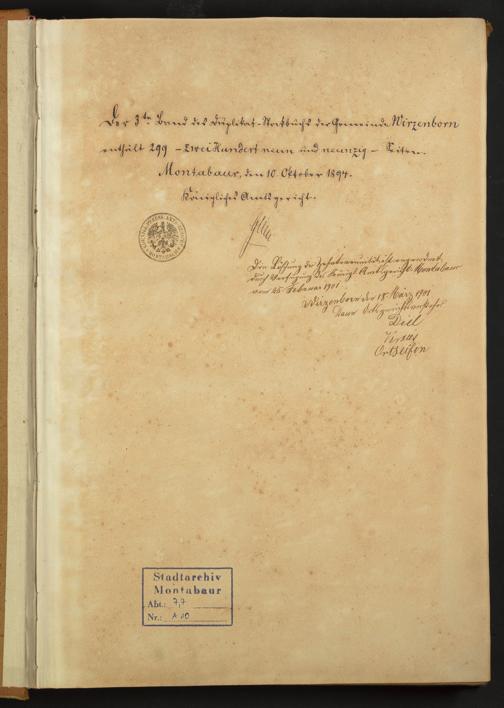 Der 3te Band des Duplikat-Stockbuchs der Gemeinde Wirzenborn
enthält 299 - zweihundert neun und neunzig - Seiten.
Montabaur, den 10. Oktober 1894.
Königliches Amtsgericht.
Die Löschung der angeordnet
durch Verfügung des Königl. Amtsgerichts Montabaur
vom 25. Februar 1901.
Wirzenborn der 18. März 1901
Diel
Ortseifen
Stadtarchiv
Montabaur
Abt.: 7,7
Nr.: A 10